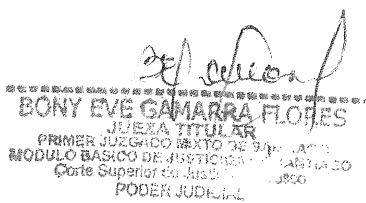 BONY EVE GAMARRA FLORES
JUEZA TITULAR
PRIMER JUZGADO MIXTO DE
MODULO BASICO DE JUSTICIA SANTIAGO
Corte Superior de Justicia
PODER JUDICIAL